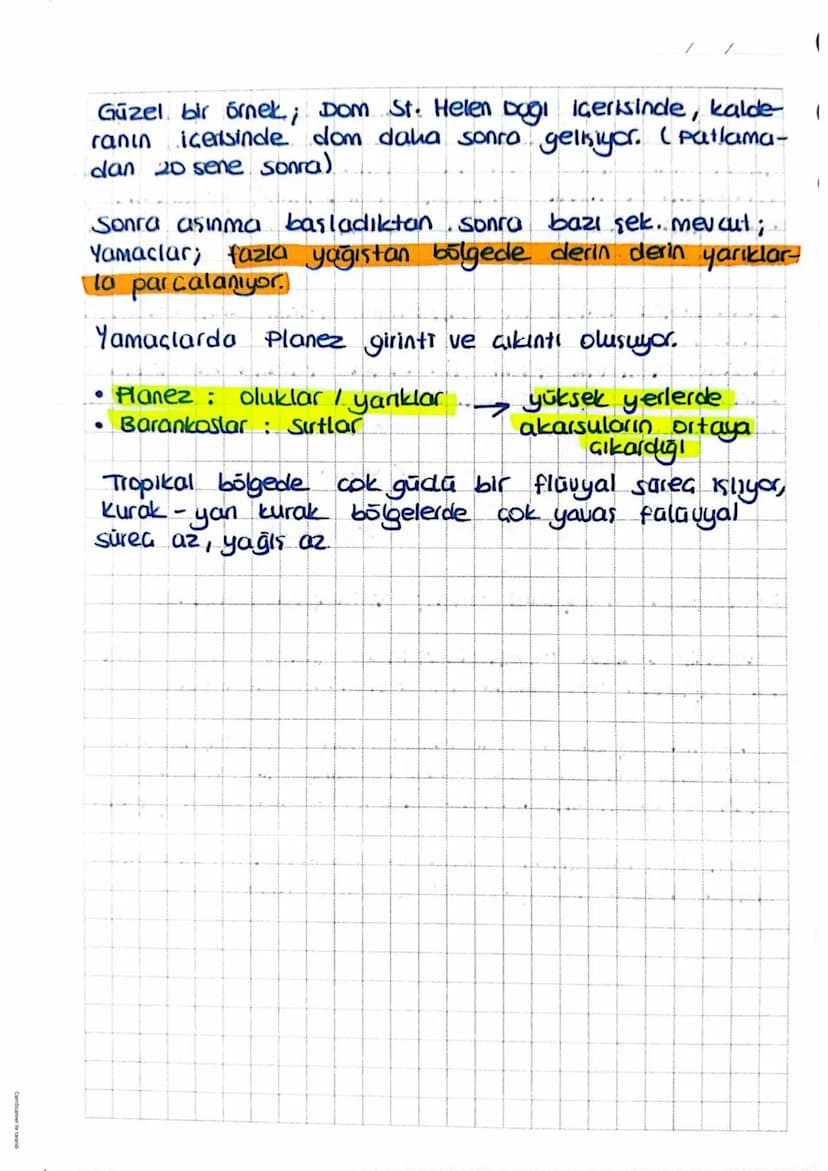 / /
Güzel bir örnek; Dom St. Helen dağı içerisinde, kalde-
ranın içerisinde dom daha sonra gelişiyor. (Patlama-
dan 20 sene sonra)
Sonra aşınma başladıktan sonra bazı şek. mevcut;
Yamaçlar; fazla yağıştan bölgede derin derin yarıklar-
la parçalanıyor.
Yamaçlarda Planez girinti ve çıkıntı oluşuyor.
• Planez : oluklar / yarıklar → yüksek yerlerde
• Barankoslar : Sırtlar akarsuların ortaya
çıkardığı
Tropikal bölgede çok güçlü bir flüvyal süreç işliyor,
Kurak - yarı kurak bölgelerde çok yavaş falüvyal
süreç az, yağış az
CamScanner ile tarandı